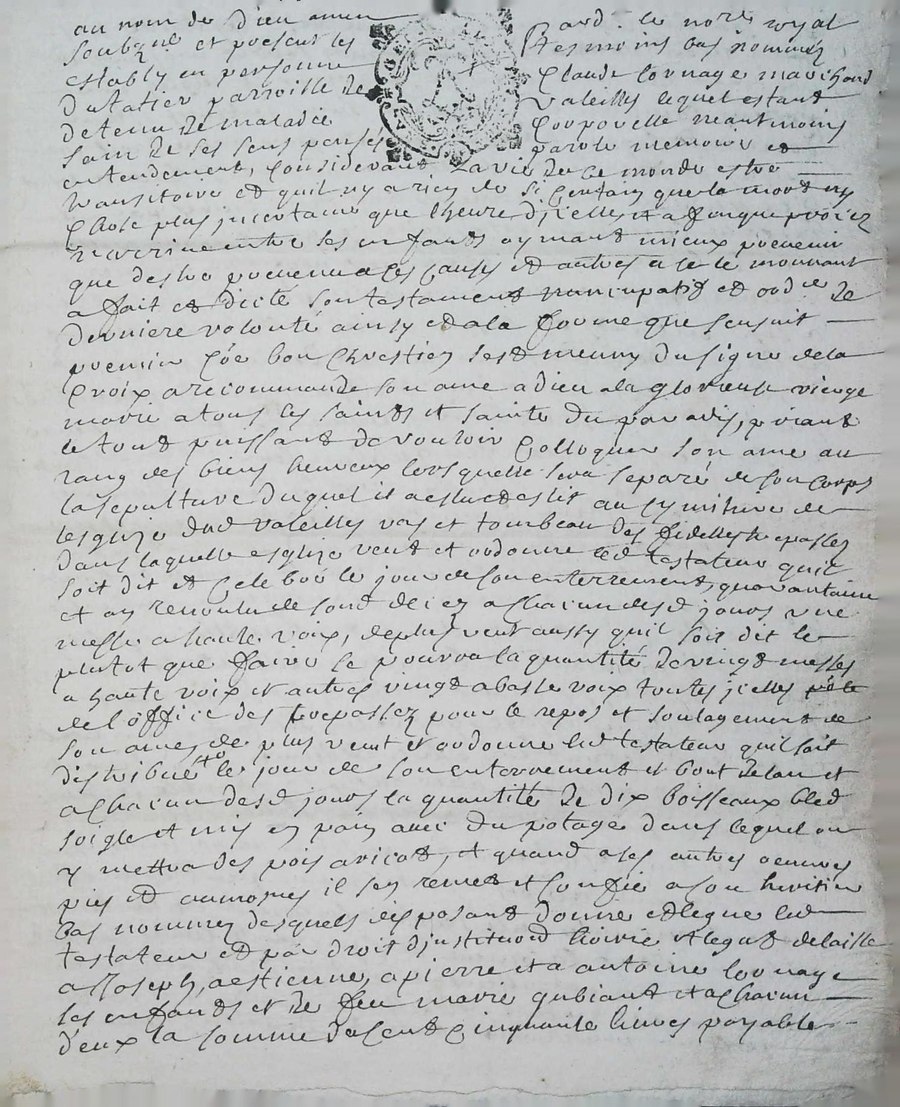 au nom de Dieu amen
Soubzné et presents les
establÿ en personne
du tatier parroisse de
detenu de maladie
sain de ses sens penses
pard. le nore royal
tesmoins bas nommez
Claude Cornage marchand
Valeilles lequel estant
Corporelle neantmoins
parole memoire et
entendement, Considerant la vie de ce monde estre
transitoire et quil ny a rien de si Certain que la mort ny
Chose plus incertaine que lheure dicelle et a fin que procez
narrive entre ses enfants aymant mieux prevenir
que destre prevenu a ces causes et autres a ce le mouvant
a fait et dicté son testament nuncupatif et ord.re de
derniere volonté ainsy et a la forme que sensuit
premier Cōe bon Chrestien sest muny du signe de la
Croix, a recommande son ame a dieu a la glorieuse vierge
marie a tous les saints et sainte du paradis, priant
le tout puissant de vouloir Colloquer son ame au
rang des biens heureux lorsquelle sera separé de son Corps
la sepulture duquel il a esluedeslit au Cymitiere de
lesglize dud valeilles vas et tombeau des fidelles trepassez
dans laquelle esglize veut et ordonne led testateur quil
soit dit et Celebré le jour de son enterrement, quarantaine
et an revoulu de fond de Cez a chacun desd jours une
messe a haute voix, de plus veut aussy quil soit dit le
plutot que faire se pourra la quantité de vingt messes
a haute voix et autres vingt a basse voix toutes icelles
de loffice des trepassez pour le repos et soulagement de
son ame, de plus veut et ordonne led testateur quil soit
distribué le jour de son enterrement et bout de lan et
a chacun desd jours la quantité de dix boisseaux bled
soigle et mis en pain avec du potage dans lequel on
y mettra des pois aricots, et quand a ses autres oeuvres
pies et aumosnes il sen remet et confie a son heritier
bas nommez desquels disposant donne et legue led
testateur et par droit dinstitution hoirie et legat delaisse
a Joseph, a estienne, a pierre et a antoine Cornage
ses enfants et de feu marie gubiant et a chacun
d'eux la somme de Cent Cinquante livres payable